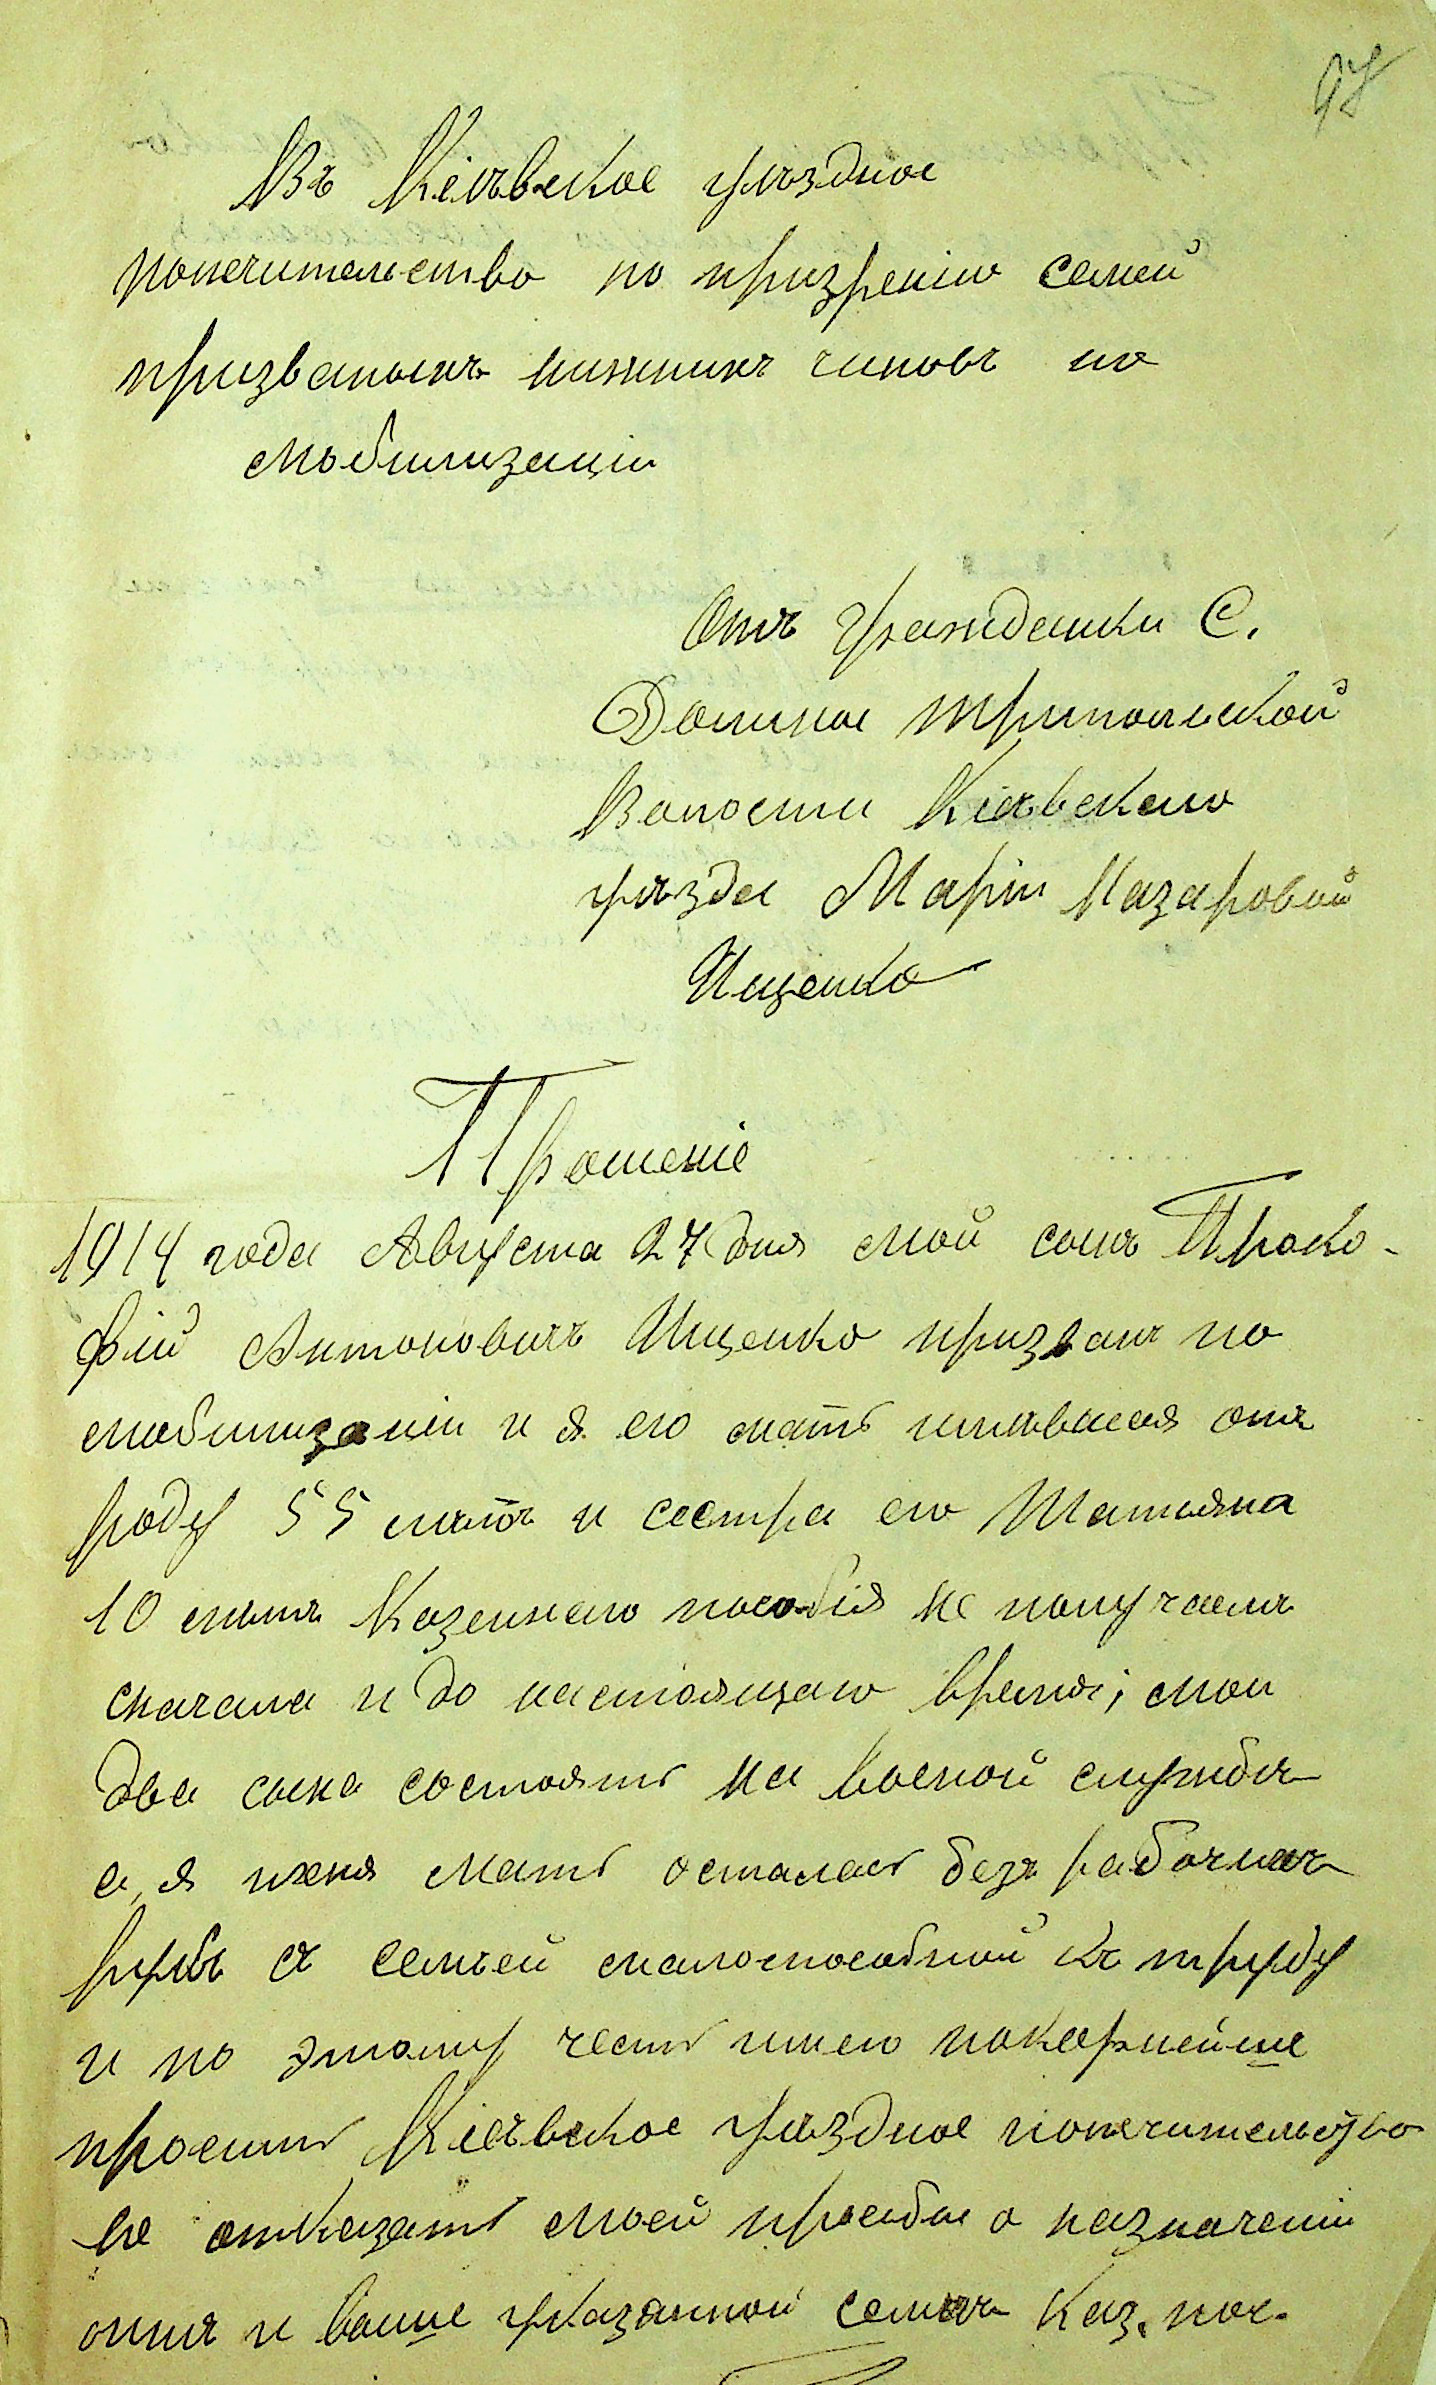 97
Въ Кіевѣское уѣздное
попечительство по призренію семей
призваныхъ нижнихъ чиновъ по
мобилизаціи
Отъ гражданки С.
Долиное трипольской
Волости Кіевѣскаго
уѣзда Маріи Назаровой
Ищенко
Прошеніе
1914 года Августа 27 дня мой сынъ Проко-
фій Антоновичъ Ищенко призванъ по
мобилизаціи и я его мать имѣвшая отъ
роду 55 лѣтъ и сестра его Татьяна
10 лѣтъ Казеннаго пособія не получаемъ
сначала и до настоящаго время; мои
два сына состоятъ на военой службѣ
а я ихъня мать осталась безъ рабочихъ
рукъ съ семьей малоспособной къ труду
и по этому честь имею покорнейше
просить Кіевѣское уѣздное попечительство
не отказать моей просьбы о назначеніи
мнѣ и выше указанной семьѣ Каз. пос.